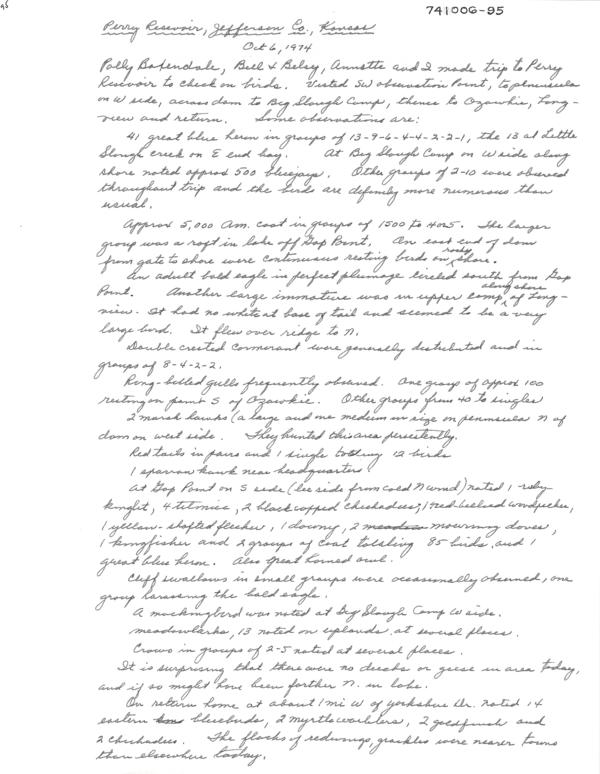 741006-95
Perry Resevoir, Jefferson Co., Kansas
Oct 6, 1974
Polly Boxendale, Bill & Betsy, Annette and I made trip to Perry
Resevoir to check on birds. Visted SW observation Point, to peninsula
on W side, across dam to Big Slough Camp, thence to Ozawkie, Long-
view and return. Some observations are:
41 great blue heron in groups of 13-9-6-4-4-2-2-1, the 13 at Little
Slough creek on E end bay. At Big Slough Camp on W side along
shore noted approx 500 bluejays. Other groups of 2-10 were observed
throughout trip and the birds are definitely more numerous than
usual.
Approx 5,000 Am. coot in groups of 1500 to 4 or 5. The larger
group was a raft in lake off Gap Point. On east end of dam
from gate to shore were continuous resting birds on rocky shore.
An adult bald eagle in perfect plumage circled south from Gap
Point. Another large immature was in upper camp along shore of Long-
view. It had no white at base of tail and seemed to be a very
large bird. It flew over ridge to N.
Double crested Cormorant were generally distributed and in
groups of 8-4-2-2.
Ring-billed gulls frequently observed. One group of approx 100
resting on point S of Ozawkie. Other groups from 40 to singles
2 marsh hawks (a large and one medium in size on peninsula N of
dam on west side. They hunted this area persistently.
Red tails in pairs and 1 single totling 12 birds
1 sparrow hawk near headquarters
At Gap Point on S side (lee side from cold N wind) noted 1 ruby
kinglet, 4 titmice, 2 black capped chickadees, 1 red-bellied woodpecker,
1 yellow-shafted flicker, 1 downy, 2 mourning doves,
1 kingfisher and 2 groups of coot totaling 85 birds and 1
great blue heron. Also great horned owl.
Cliff swallows in small groups were occasionally observed, one
group harassing the bald eagle.
A mockingbird was noted at Big Slough Camp W side.
meadowlarks, 13 noted on uplands at several places.
Crows in groups of 2-5 noted at several places.
It is surprising that there were no ducks or geese in area today,
and if so might have been farther N. in lake.
On return home at about 1 mi W of Yorkshire Dr. noted 14
eastern bluebirds, 2 myrtle warblers, 2 goldfinch and
2 chickadees. The flocks of redwings, grackles were nearer towns
than elsewhere today.